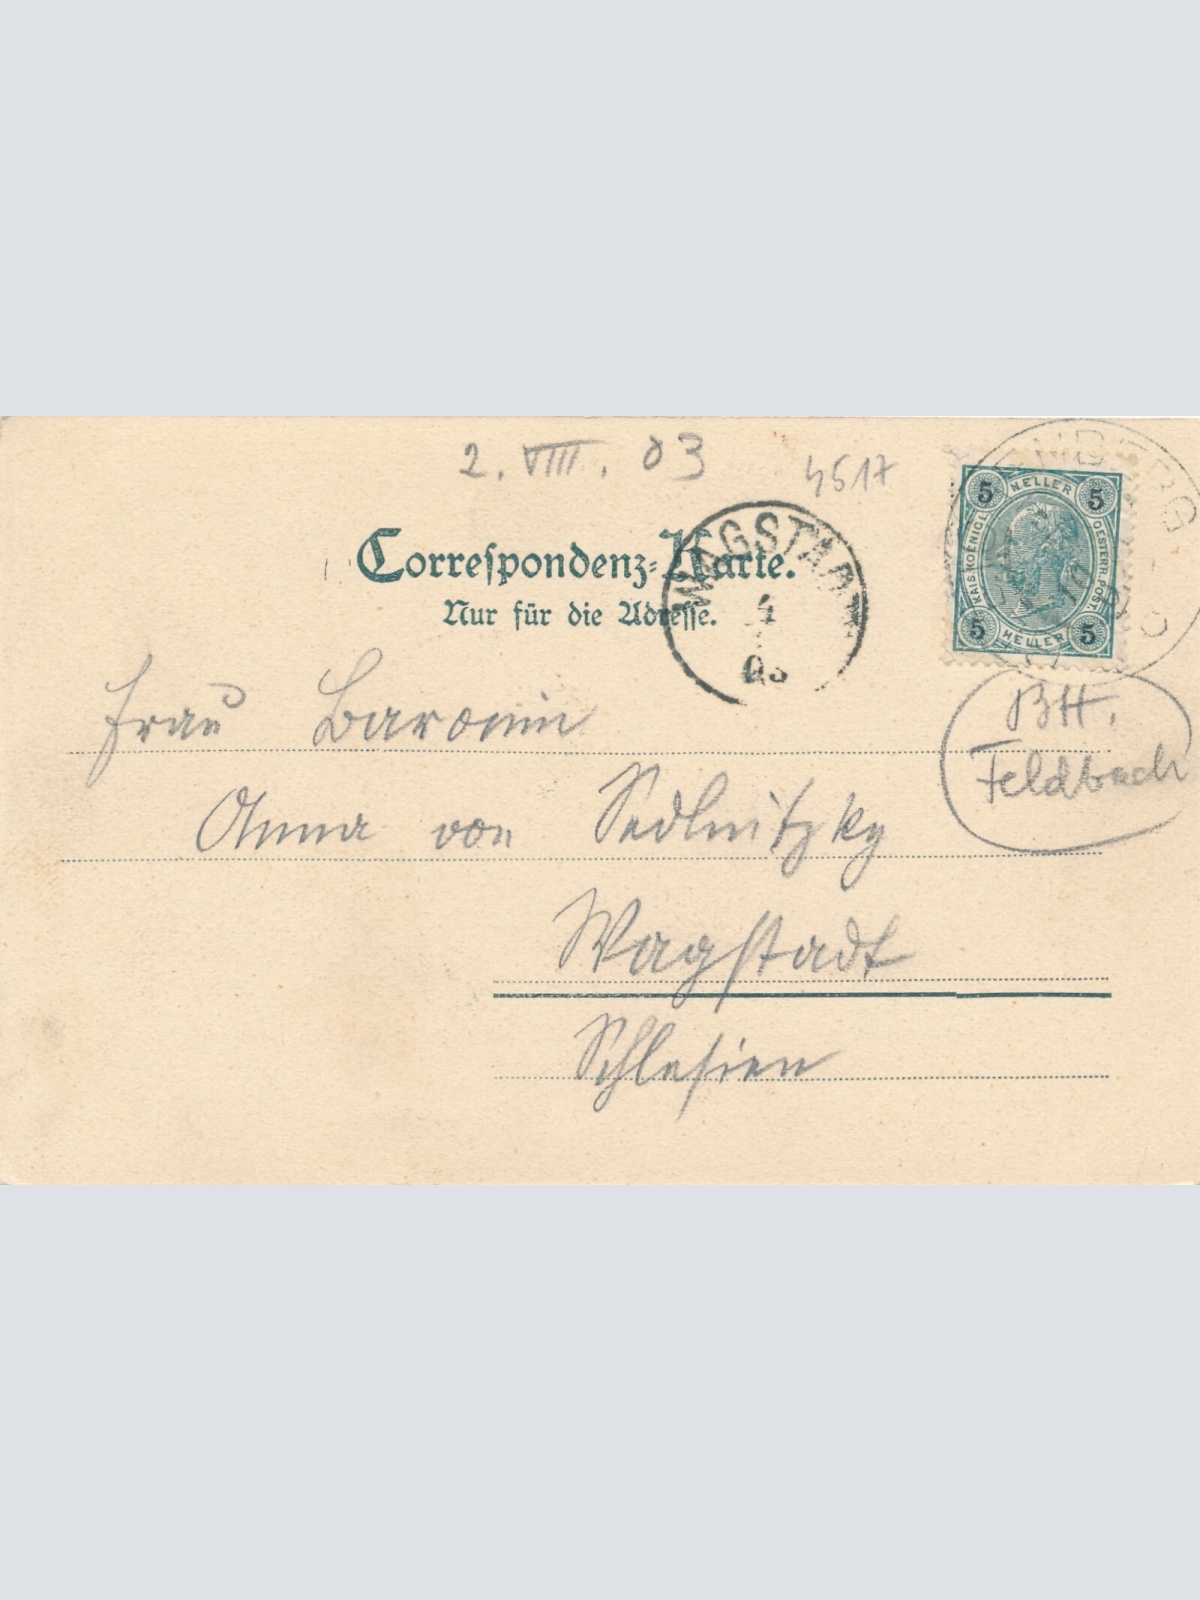 2. VIII. 03
4517
Correspondenz-Karte.
Nur für die Adresse.
WAGSTADT
4
03
5 HELLER 5
KAIS. KOENIGL. OESTERR. POST.
5 HELLER 5
Frau Baronin
BH.
Feldbach
Anna von Sedlnitzky
Wagstadt
Schlesien